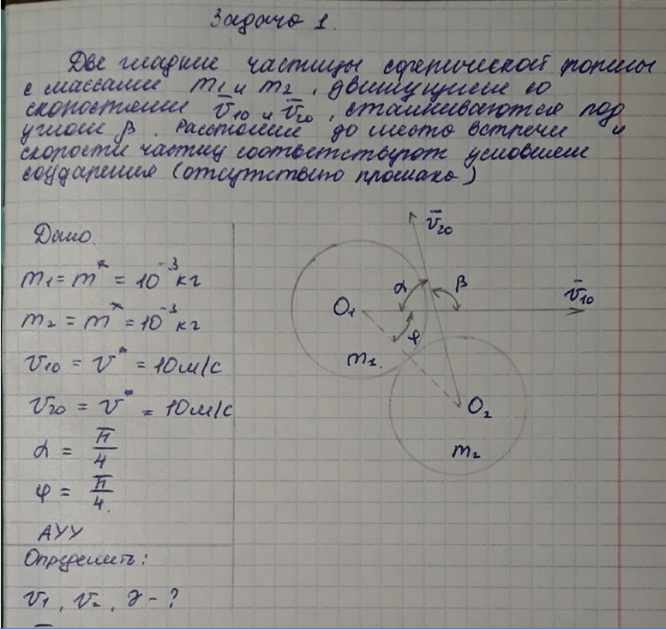 Задача 1.
Две гладкие частицы сферической формы
с массами m₁ и m₂, движущиеся со
скоростями v̄₁₀ и v̄₂₀, сталкиваются под
углом β. Расстояние до места встречи и
скорости частиц соответствуют условиям
соударения (отсутствию промаха)
Дано
m₁ = m* = 10⁻³ кг
m₂ = m* = 10⁻³ кг
v₁₀ = v* = 10 м/с
v₂₀ = v* = 10 м/с
α = π/4
φ = π/4.
АУУ
Определить:
v₁, v₂, γ - ?
v̄₂₀
α
β
v̄₁₀
O₁
φ
m₁.
O₂
m₂